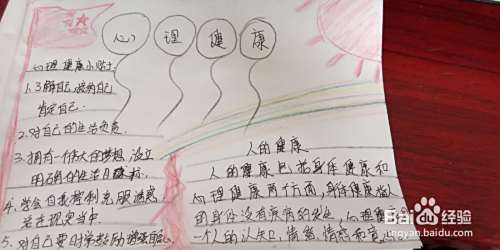 心 理 健 康
心理健康小贴士
1.了解自己,接纳自己
肯定自己.
2.对自己的生活负责
3.拥有一个伟大的梦想,设立
明确的生活目标.
4.学会自我控制,克服
活在现实当中.
5.对自己要时常鼓励
人的健康
人的健康包括身体健康和
心理健康两个方面,身体健康
的身体没有疾病的
一个人的认知、情感
Baidu 经验
jingyan.baidu.com